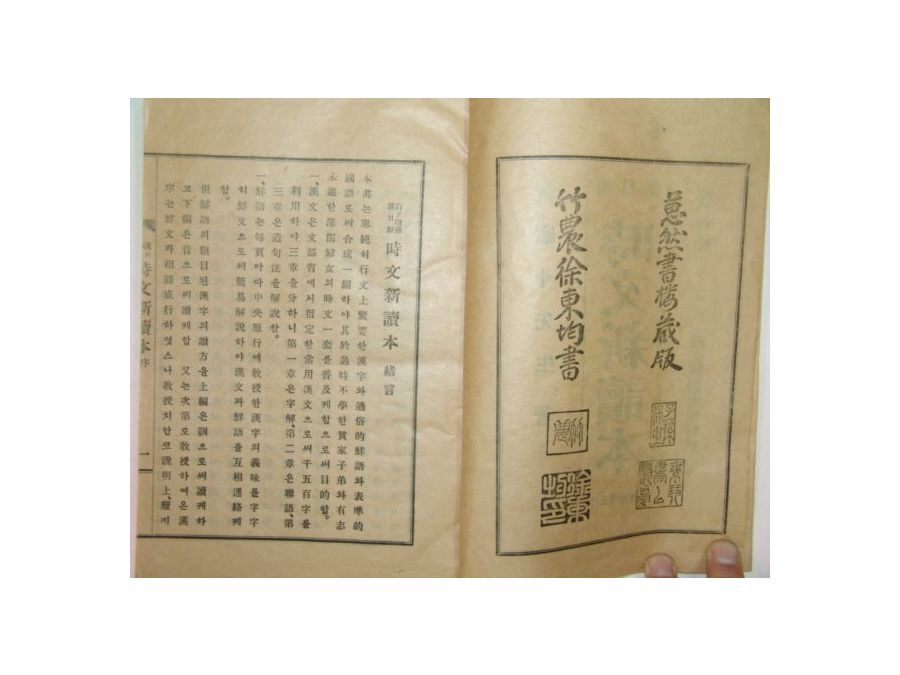 蔥然書樓藏版
竹農徐東均書
時文新讀本 緖言
本書는單純히行文上緊要한漢字와通俗的鮮語와表準的
國語로써合成一編하야其於過時不學한貧家子弟와有志
未遂한深閨婦女의時文一套를普及케함으로써目的함。
一、漢文은文部省에서指定한常用漢文으로써千五百字를
利用하야三章을分하니第一章은字解、第二章은聯語、第
三章은造句法을解說함。
一、鮮語는每頁아마中央原行에敎授한漢字의義味를字字
히鮮文으로써簡易解說하야漢文과鮮語를互相連絡케
함。
但鮮語의題目된漢字의讀方을上編은訓으로써讀케하
고下編은音으로써讀케함 又는次第로敎授하여온漢
字는鮮文과相雜成行하엿스나敎授치안코說明上、廢지
時文新讀本 序 一